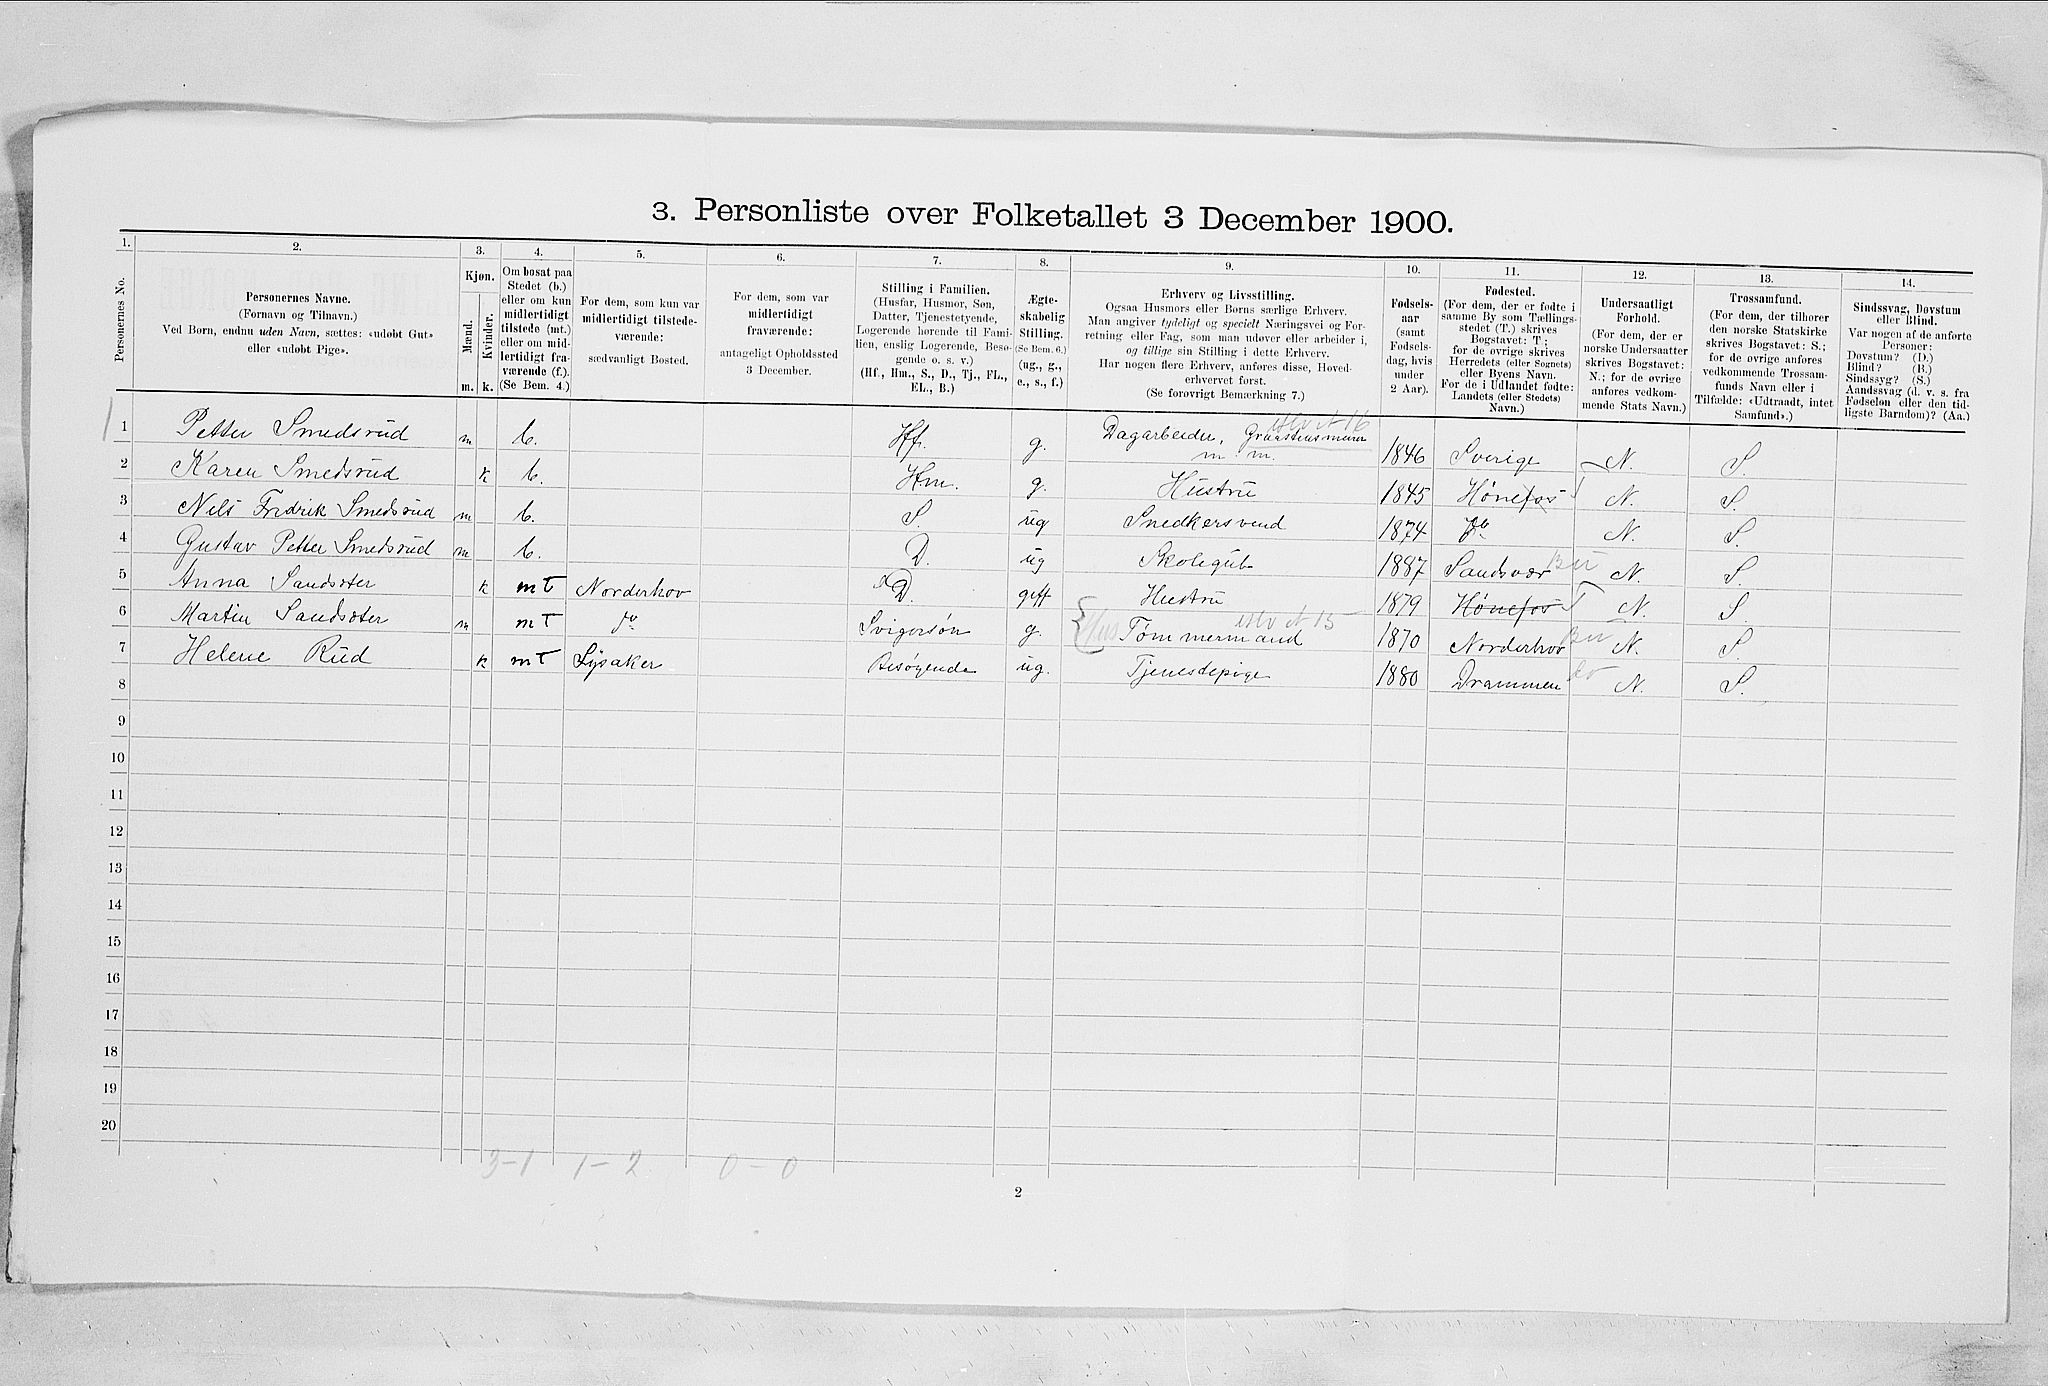 3. Personliste over Folketallet 3 December 1900.
1. 2. 3. 4. 5. 6. 7. 8. 9. 10. 11. 12. 13. 14.
Personernes No.
Personernes Navne.
(Fornavn og Tilnavn.)
Ved Børn, endnu uden Navn, sættes: «udøbt Gut»
eller «udøbt Pige».
Kjøn.
Mænd.
Kvinder.
m. k.
Om bosat paa
Stedet (b.)
eller om kun
midlertidigt
tilstede (mt.)
eller om mid-
lertidigt fra-
værende (f.).
(Se Bem. 4.)
For dem, som kun var
midlertidigt tilstede-
værende:
sædvanligt Bosted.
For dem, som var
midlertidigt
fraværende:
antageligt Opholdssted
3 December.
Stilling i Familien.
(Husfar, Husmor, Søn,
Datter, Tjenestetyende,
Logerende hørende til Fami-
lien, enslig Logerende, Besø-
gende o. s. v.)
(Hf., Hm., S., D., Tj., FL.,
EL., B.)
Ægte-
skabelig
Stilling.
(Se Bem. 6.)
(ug., g.,
e., s., f.)
Erhverv og Livsstilling.
Ogsaa Husmors eller Børns særlige Erhverv.
Man angiver tydeligt og specielt Næringsvei og For-
retning eller Fag, som man udøver eller arbeider i,
og tillige sin Stilling i dette Erhverv.
Har nogen flere Erhverv, anføres disse, Hoved-
erhvervet først.
(Se forøvrigt Bemærkning 7.)
Fødsels-
aar
(samt
Fødsels-
dag, hvis
under
2 Aar).
Fødested.
(For dem, der er fødte i
samme By som Tællings-
stedet (T.) skrives
Bogstavet: T;
for de øvrige skrives
Herredets (eller Sognets)
eller Byens Navn.
For de i Udlandet fødte:
Landets (eller Stedets)
Navn.)
Undersaatligt
Forhold.
(For dem, der er
norske Undersaatter
skrives Bogstavet:
N.; for de øvrige
anføres vedkom-
mende Stats Navn.)
Trossamfund.
(For dem, der tilhører
den norske Statskirke
skrives Bogstavet: S.;
for de øvrige anføres
vedkommende Trossam-
funds Navn eller i
Tilfælde: «Udtraadt, intet
Samfund».)
Sindssvag, Døvstum
eller Blind.
Var nogen af de anførte
Personer:
Døvstum? (D.)
Blind? (B.)
Sindssyg? (S.)
Aandssvag (d. v. s. fra
Fødselen eller den tid-
ligste Barndom)? (Aa.)
1 Petter Smedsrud m b. Hf. g. Dagarbeider, Graastensmurer m. m. 1846 Sverige N. S.
2 Karen Smedsrud k b. Hm. g. Hustru 1845 Hønefos T N. S.
3 Nils Fredrik Smedsrud m b. S. ug Snedkersvend 1874 do N. S.
4 Gustav Petter Smedsrud m b. D. ug Skolegut 1887 Sandsvær Bu N. S.
5 Anna Sandsæter k mT Norderhov D. gift Hustru 1879 Hønefos T N. S.
6 Martin Sandsæter m mT do Svigersøn g. Tømmermand 1870 Norderhov Bu N. S.
7 Helene Rud k mT Lysaker Besøgende ug. Tjenestepige 1880 Drammen N. S.
8
9
10
11
12
13
14
15
16
17
18
19
20
3-1 1-2 0-0
2